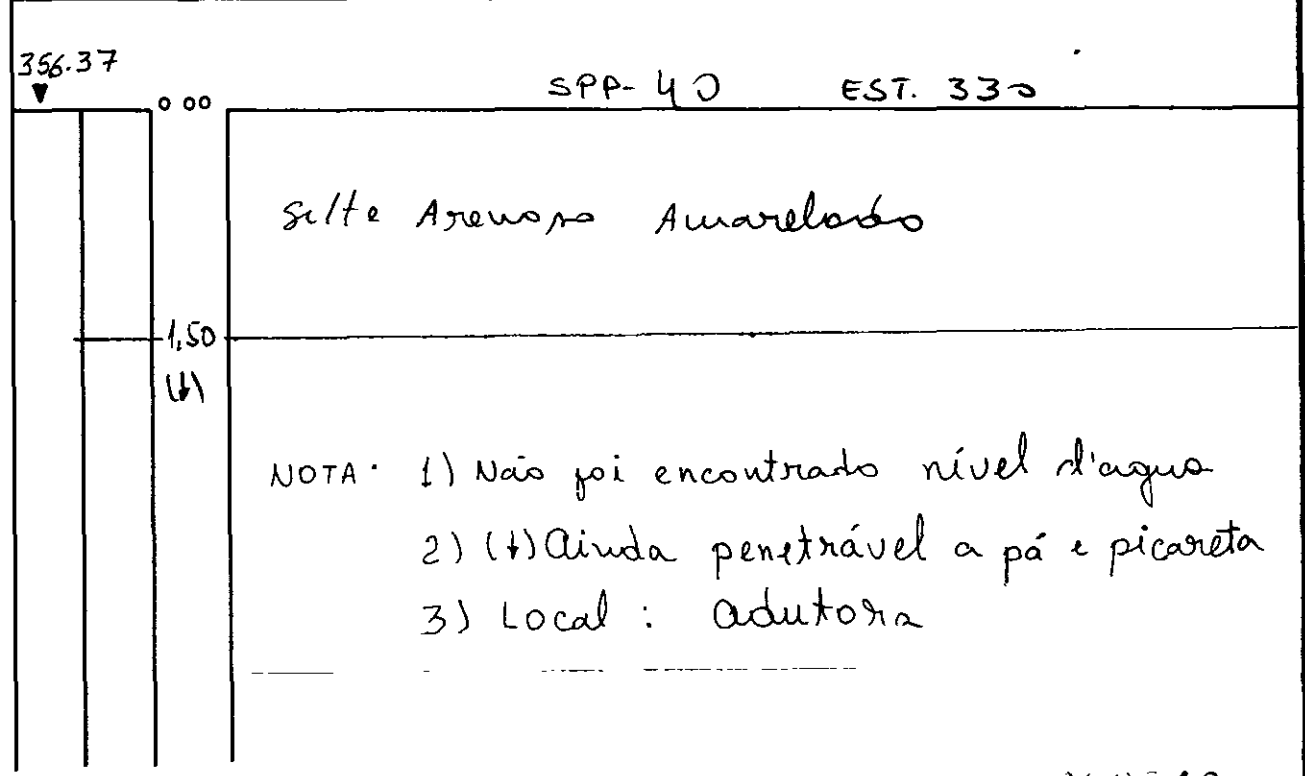 356.37
SPP-40 EST. 330
0 00
Silte Arenoso Amarelado
1,50
(↓)
NOTA· 1) Não foi encontrado nível d'agua
2) (↓) Ainda penetrável a pá e picareta
3) Local : adutora